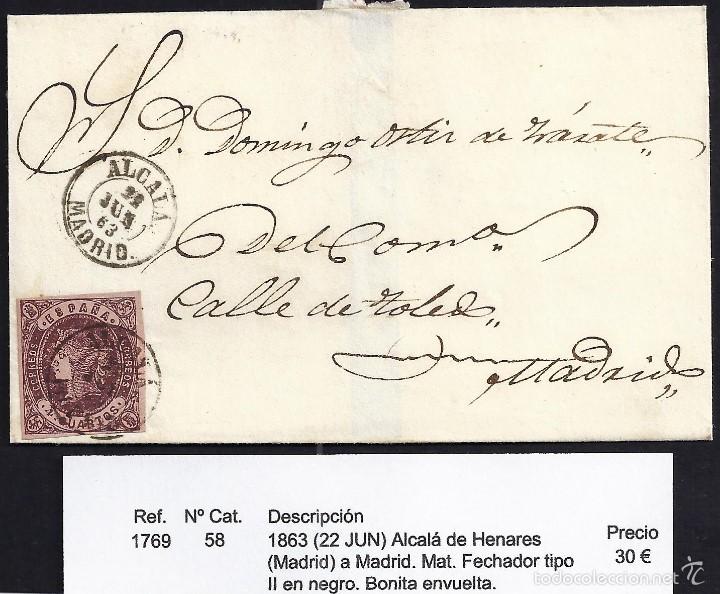 S. D. Domingo Ortiz de Zárate
Del Comº
Calle de Toledo
Madrid
ALCALA.
22
JUN
63
MADRID.
ESPAÑA
CORREOS
CORREOS
4 CUARTOS
Ref. Nº Cat. Descripción Precio
1769 58 1863 (22 JUN) Alcalá de Henares 30 €
(Madrid) a Madrid. Mat. Fechador tipo
II en negro. Bonita envuelta.
todocoleccion.net